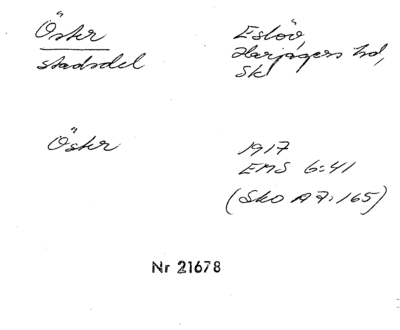 Öster
stadsdel
Eslöv,
Harjagers hd,
Sk
Öster
1917
EMS 6:41
(Sko A7:165)
Nr 21678